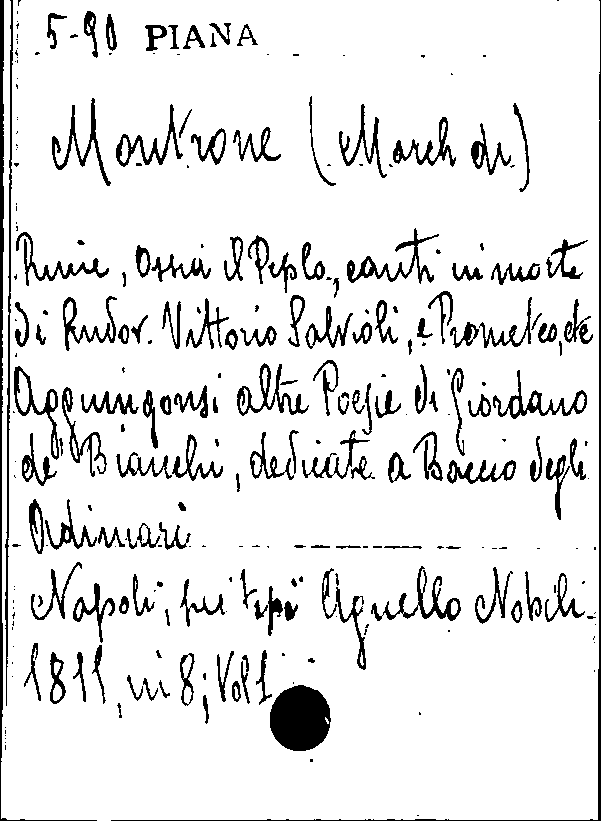 5-90 PIANA
Montrone (March di)
Rime, ossia il Peplo, canti in morte
di Ludov. Vittorio Salvioli, e Prometeo, etc
Aggiungonsi altre Poesie di Giordano
de' Bianchi, dedicate a Baccio degli
Ordimari
Napoli, pei tipi Agnello Nobili
1811, in 8; Vol 1